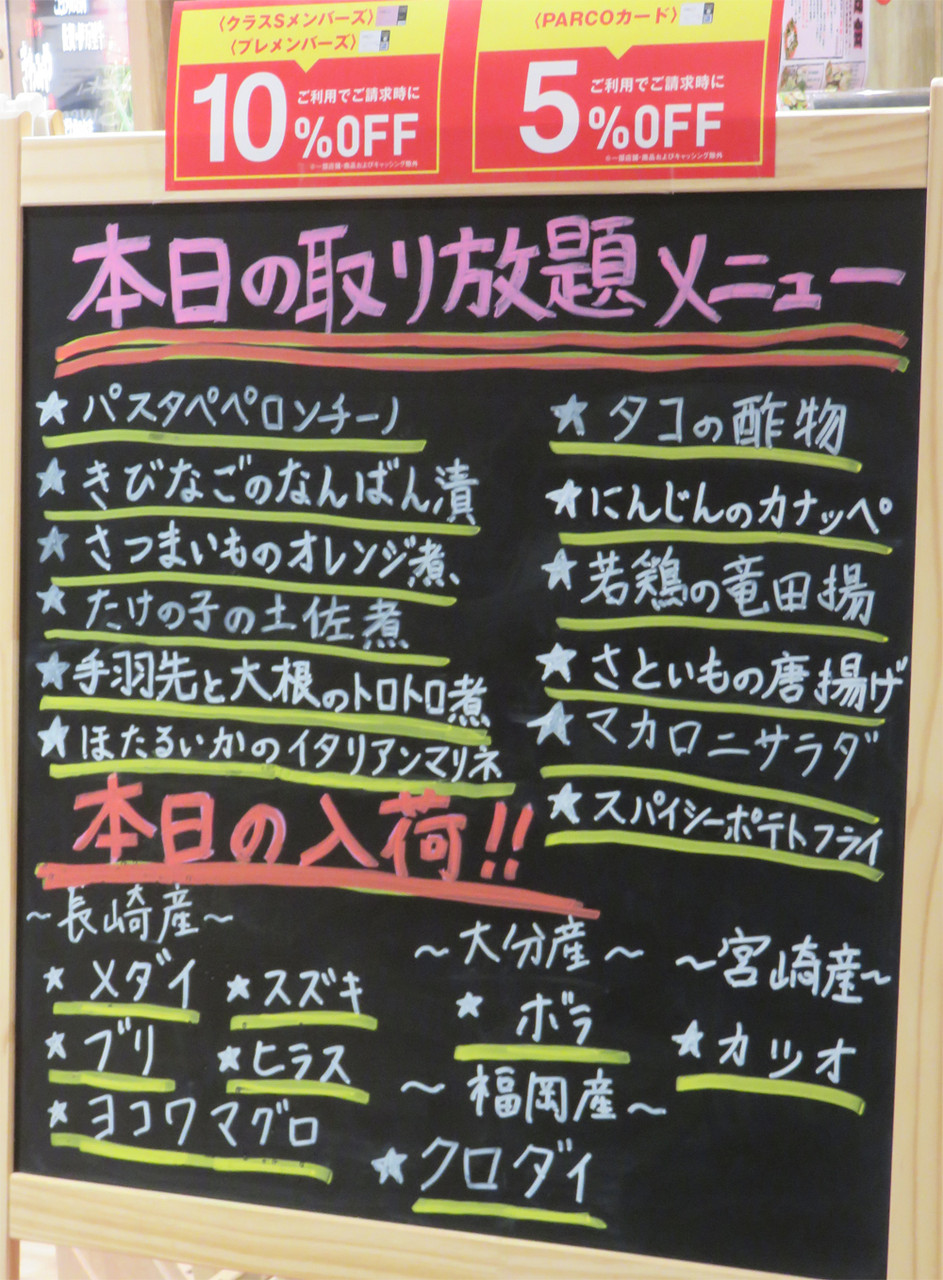 〈クラスSメンバーズ〉
〈プレメンバーズ〉
ご利用でご請求時に
10%OFF
※一部店舗・商品およびキャッシング除外
〈PARCOカード〉
ご利用でご請求時に
5%OFF
※一部店舗・商品およびキャッシング除外
本日の取り放題メニュー
★パスタペペロンチーノ
★きびなごのなんばん漬
★さつまいものオレンジ煮
★たけの子の土佐煮
★手羽先と大根のトロトロ煮
★ほたるいかのイタリアンマリネ
★タコの酢物
★にんじんのカナッペ
★若鶏の竜田揚
★さといもの唐揚げ
★マカロニサラダ
★スパイシーポテトフライ
本日の入荷!!
~長崎産~
★メダイ
★スズキ
★ブリ
★ヒラス
★ヨコワマグロ
~大分産~
★ボラ
~福岡産~
★クロダイ
~宮崎産~
★カツオ